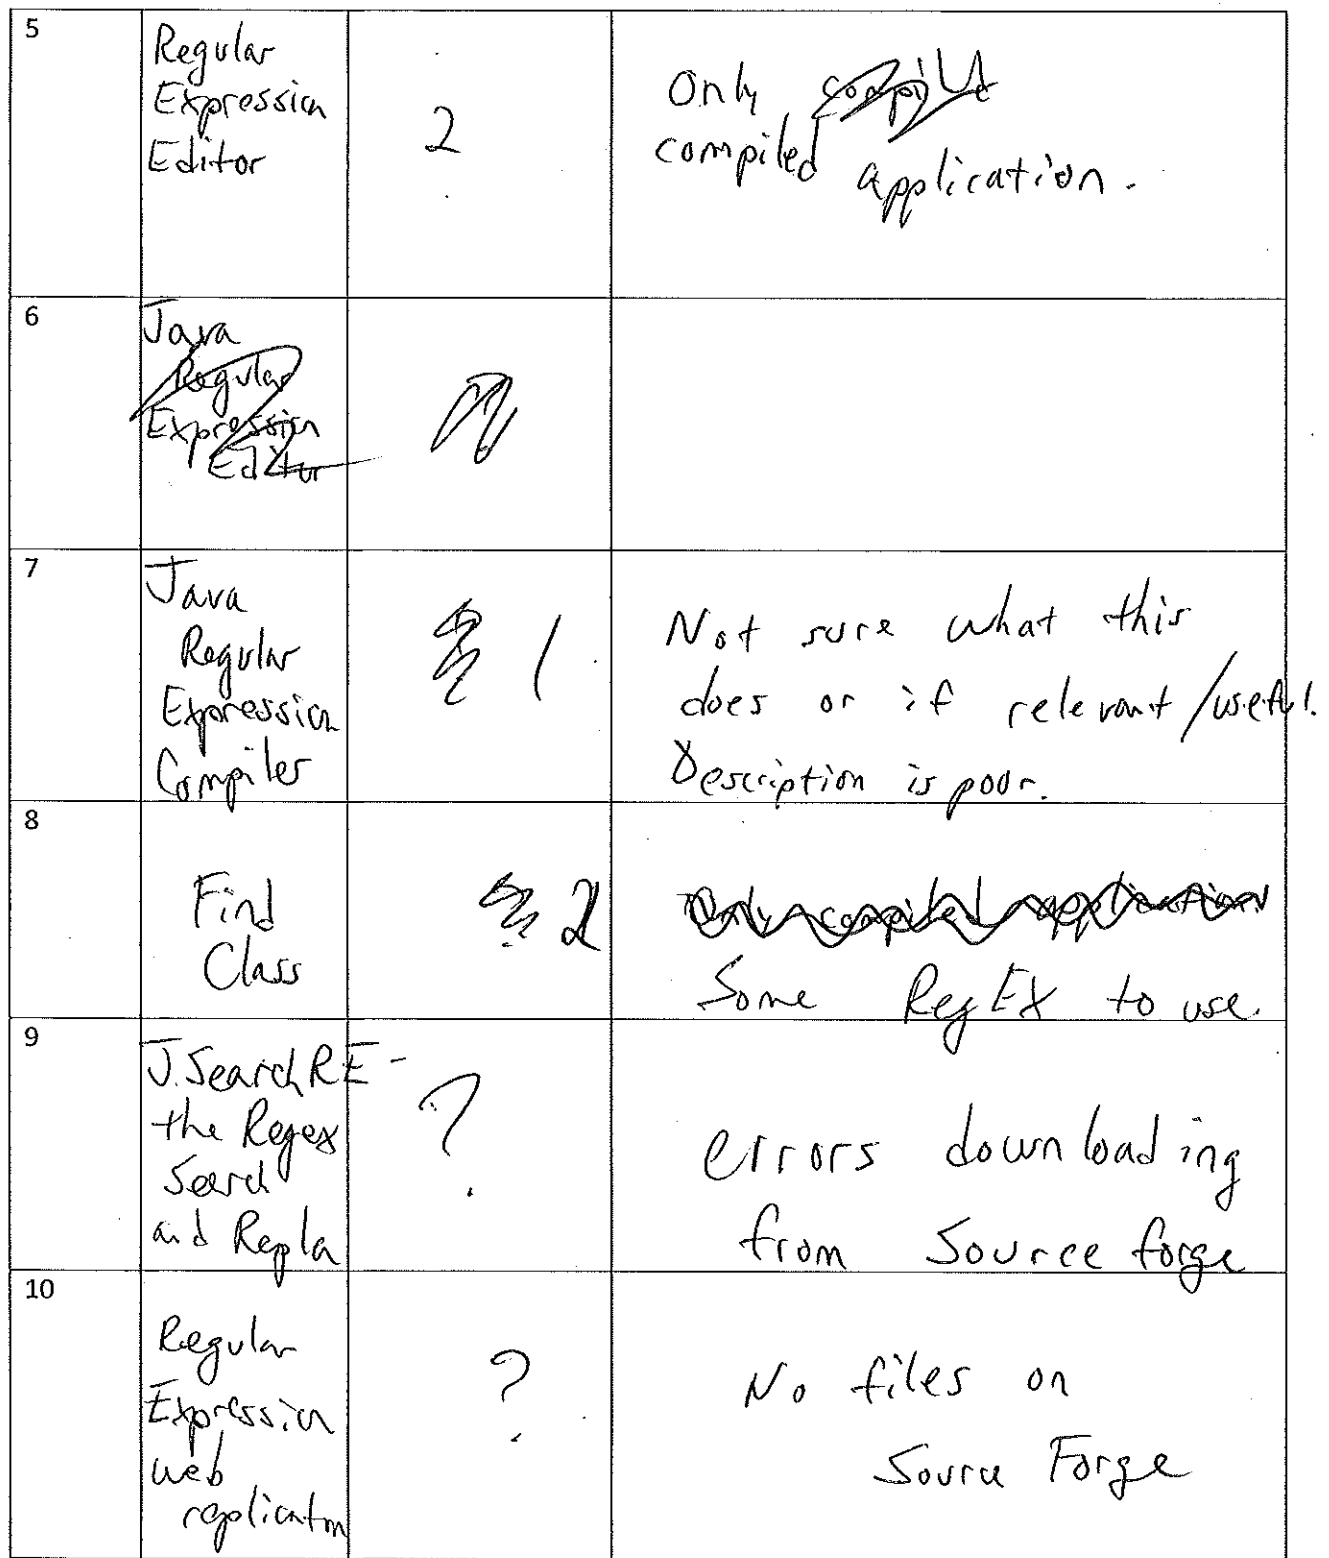 5
Regular
Expression
Editor
2
Only
compiled application.
6
Java
Regular
Expression
Editor
7
Java
Regular
Expression
Compiler
1
Not sure what this
does or if relevant/useful.
Description is poor.
8
Find
Class
2
Only compiled application
Some RegEX to use.
9
J.SearchRE-
the Regex
Search
and Repla
?
errors downloading
from Source forge
10
Regular
Expression
web
replicatm
?
No files on
Source Forge